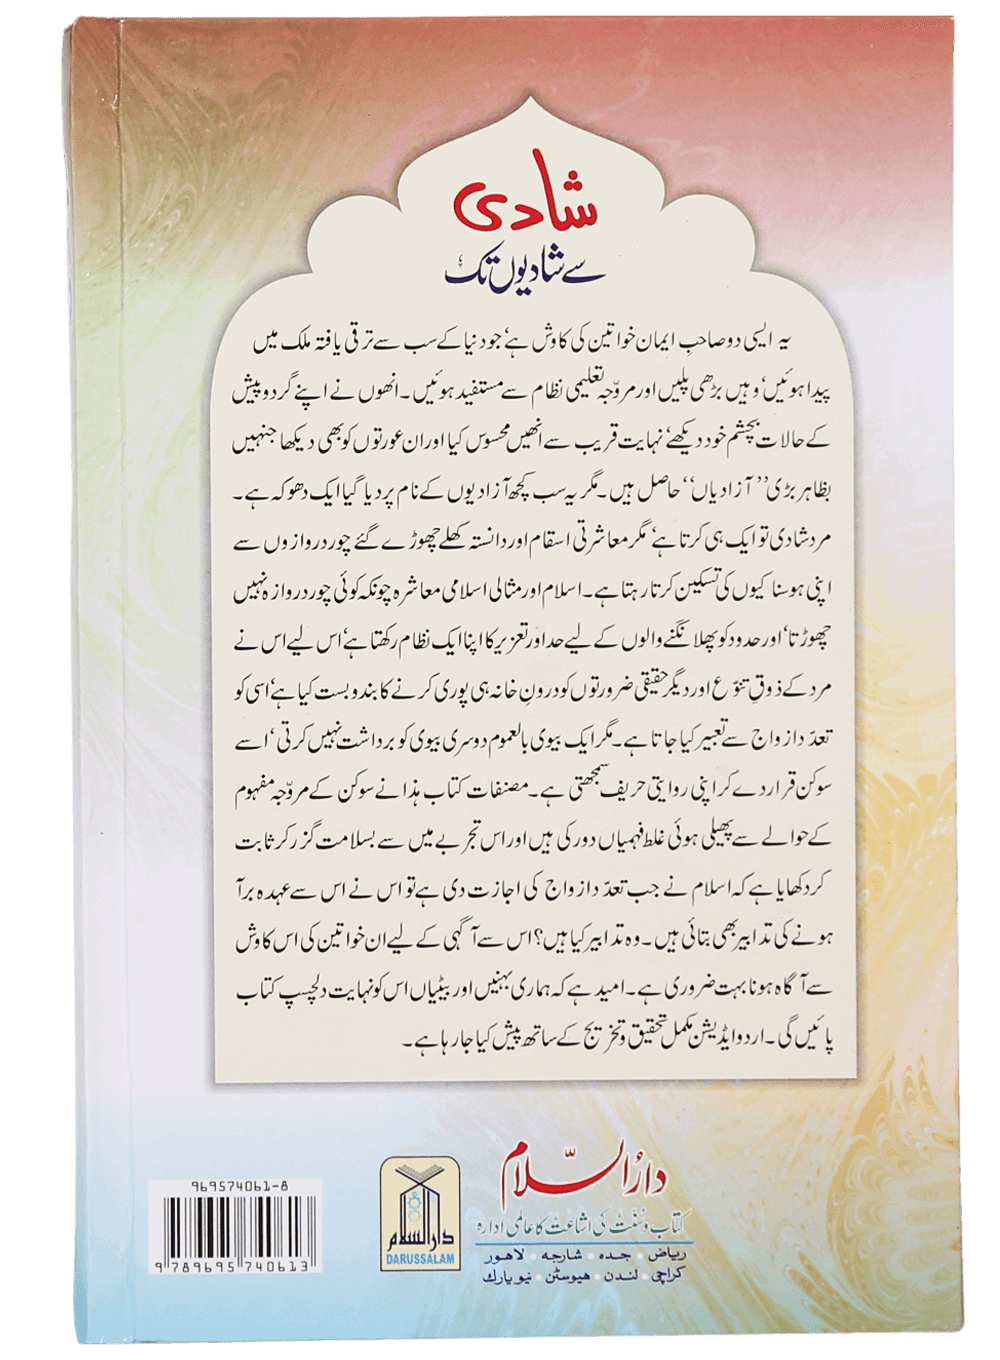 شادی
سے شادیوں تک
یہ ایسی دو صاحبِ ایمان خواتین کی کاوش ہے، جو دنیا کے سب سے ترقی یافتہ ملک میں
پیدا ہوئیں، وہیں بڑھی پلیں اور مروّجہ تعلیمی نظام سے مستفید ہوئیں۔ انھوں نے اپنے گرد و پیش
کے حالات بچشم خود دیکھے، نہایت قریب سے انھیں محسوس کیا اور ان عورتوں کو بھی دیکھا جنہیں
بظاہر بڑی ’’آزادیاں‘‘ حاصل ہیں۔ مگر یہ سب کچھ آزادیوں کے نام پر دیا گیا ایک دھوکہ ہے۔
مرد شادی تو ایک ہی کرتا ہے، مگر معاشرتی اسقام اور دانستہ کھلے چھوڑے گئے چور دروازوں سے
اپنی ہوسناکیوں کی تسکین کرتا رہتا ہے۔ اسلام اور مثالی اسلامی معاشرہ چونکہ کوئی چور دروازہ نہیں
چھوڑتا، اور حدود کو پھلانگنے والوں کے لیے حد اور تعزیر کا اپنا ایک نظام رکھتا ہے، اس لیے اس نے
مرد کے ذوقِ تنوّع اور دیگر حقیقی ضرورتوں کو درونِ خانہ ہی پوری کرنے کا بندوبست کیا ہے، اسی کو
تعدّد ازواج سے تعبیر کیا جاتا ہے۔ مگر ایک بیوی بالعموم دوسری بیوی کو برداشت نہیں کرتی، اسے
سوکن قرار دے کر اپنی روایتی حریف سمجھتی ہے۔ مصنفات کتاب ہذا نے سوکن کے مروّجہ مفہوم
کے حوالے سے پھیلی ہوئی غلط فہمیاں دور کی ہیں اور اس تجربے میں سے بسلامت گزر کر ثابت
کر دکھایا ہے کہ اسلام نے جب تعدّد ازواج کی اجازت دی ہے تو اس نے اس سے عہدہ برآ
ہونے کی تدابیر بھی بتائی ہیں۔ وہ تدابیر کیا ہیں؟ اس سے آگہی کے لیے ان خواتین کی اس کاوش
سے آگاہ ہونا بہت ضروری ہے۔ امید ہے کہ ہماری بہنیں اور بیٹیاں اس کو نہایت دلچسپ کتاب
پائیں گی۔ اردو ایڈیشن مکمل تحقیق و تخریج کے ساتھ پیش کیا جا رہا ہے۔
دارُالسّلام
کتاب و سنّت کی اشاعت کا عالمی ادارہ
ریاض • جدہ • شارجہ • لاہور
کراچی • لندن • ہیوسٹن • نیو یارک
دارالسلام
DARUSSALAM
969574061-8
9 789695 740613